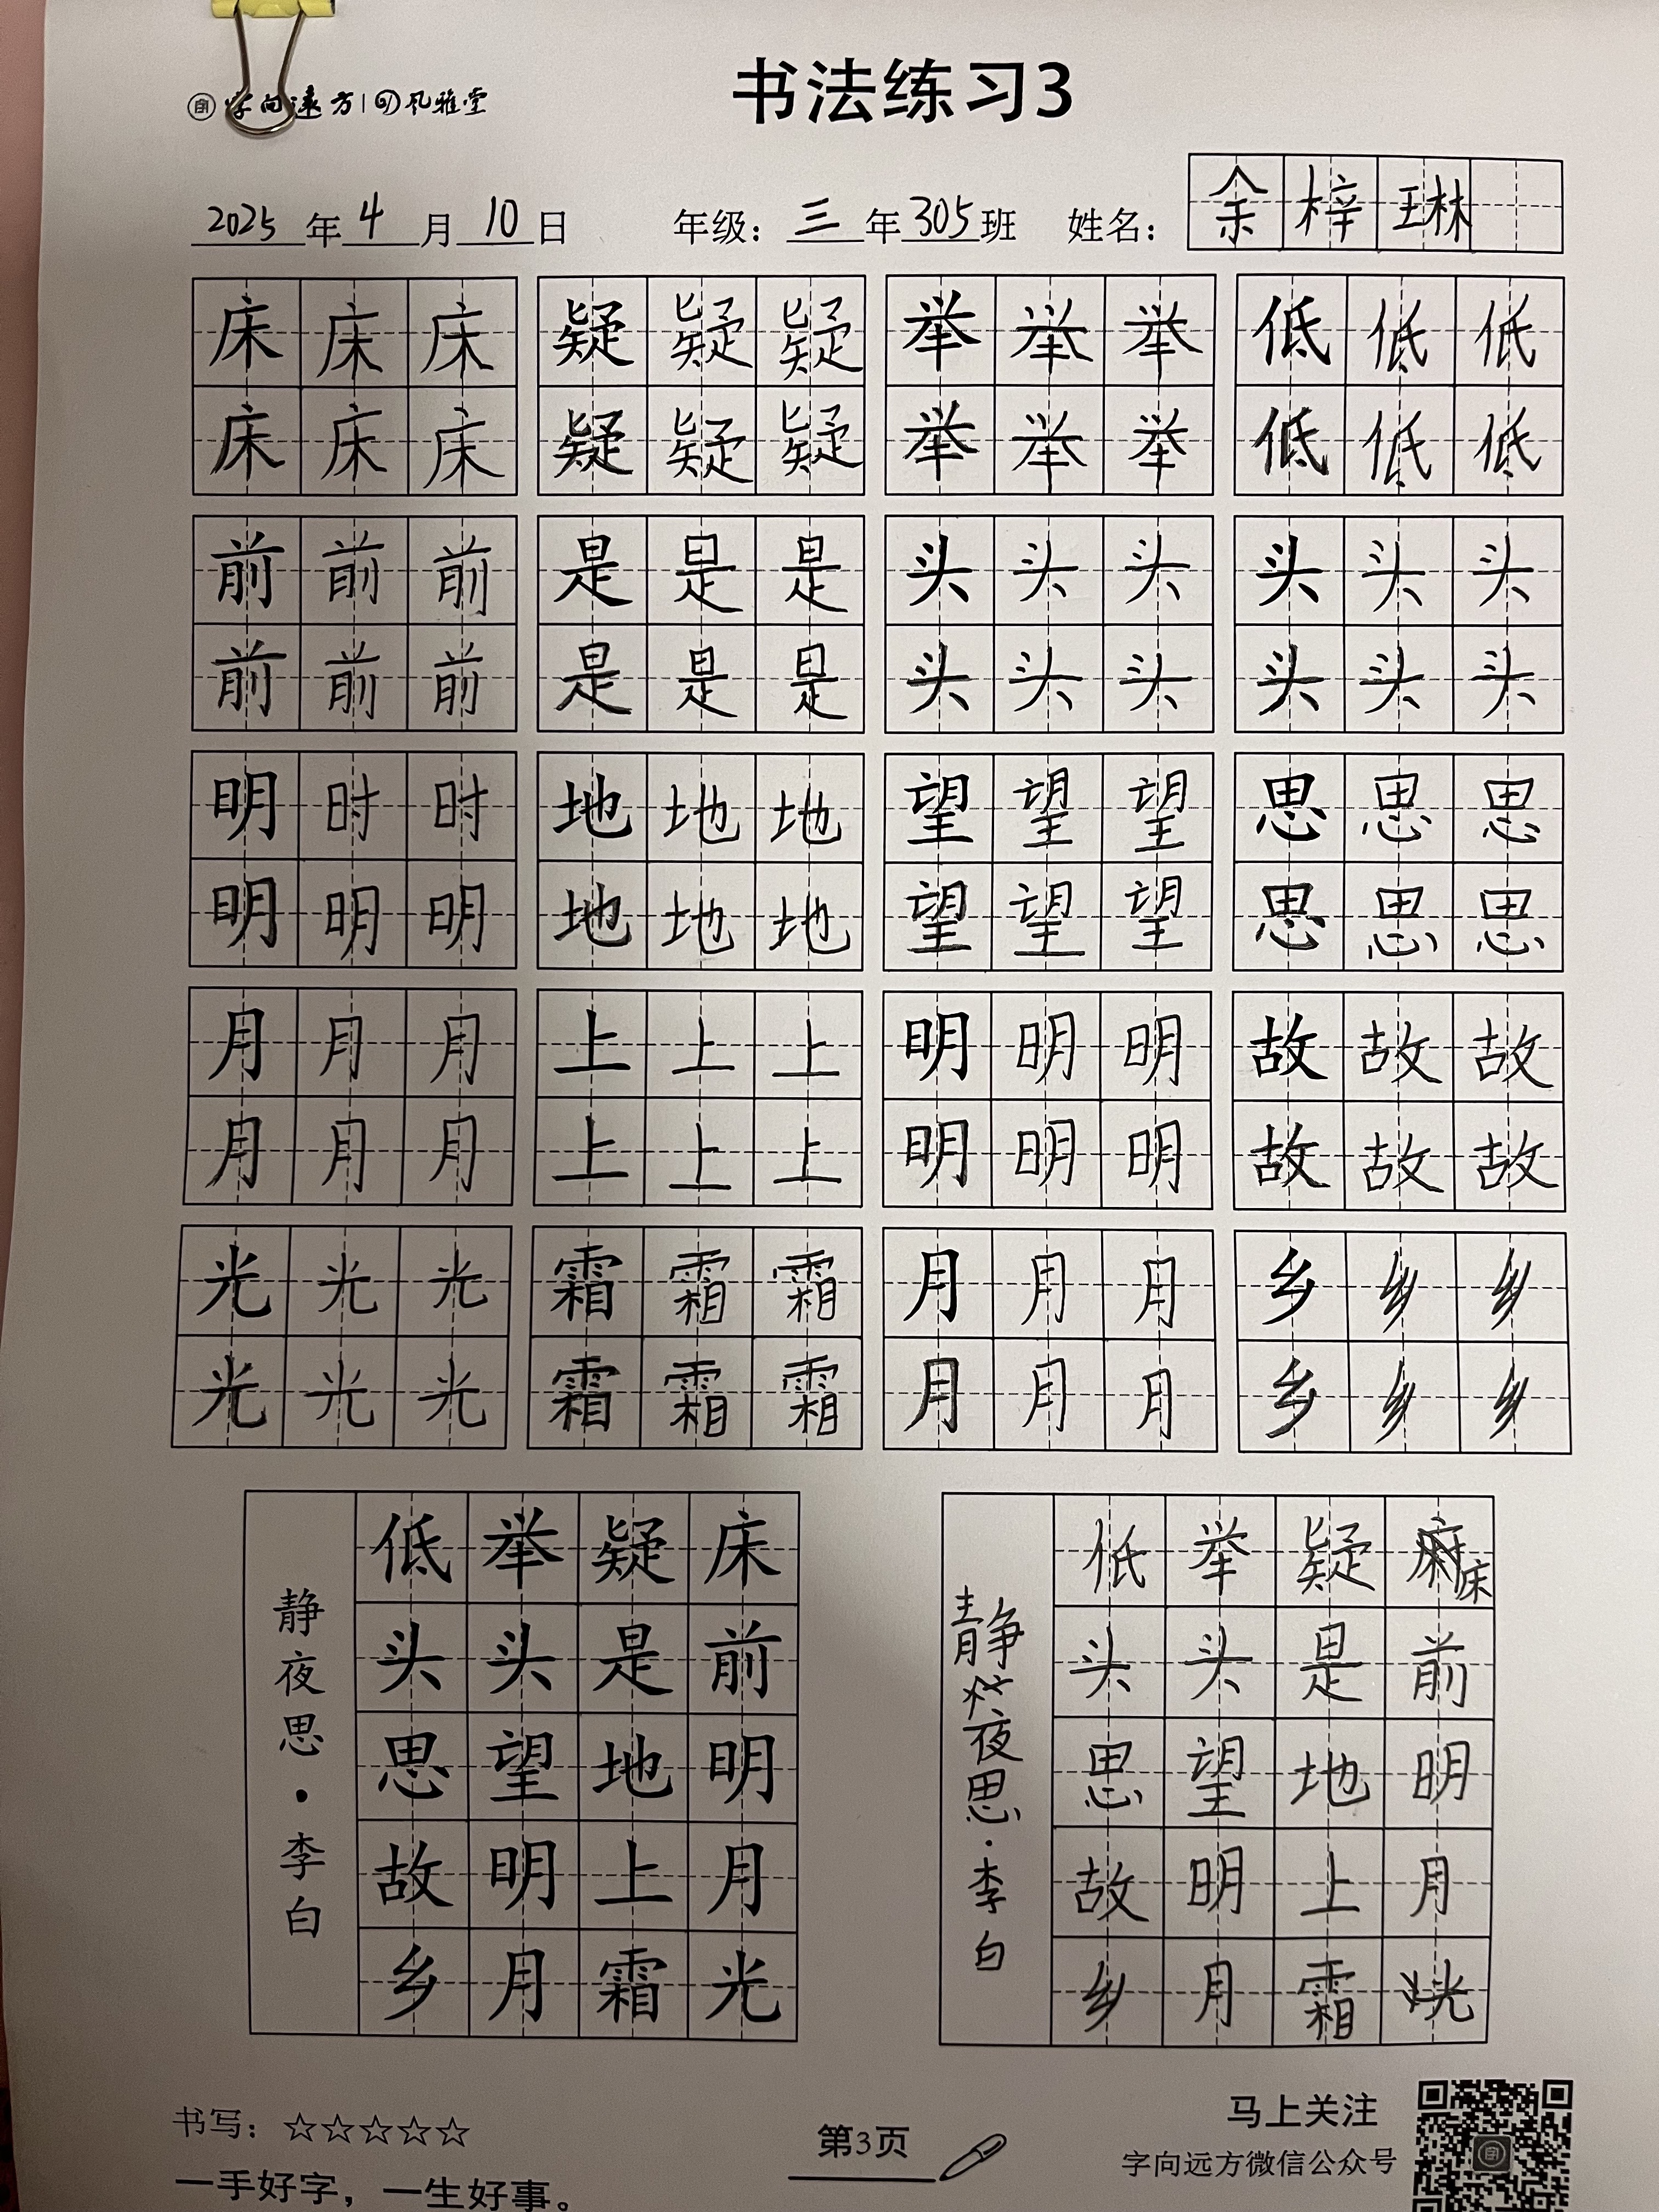 字向远方 | 风雅堂
书法练习3
2025年4月10日 年级：三年305班 姓名：余梓琳
床床床 疑疑疑 举举举 低低低
床床床 疑疑疑 举举举 低低低
前前前 是是是 头头头 头头头
前前前 是是是 头头头 头头头
明时时 地地地 望望望 思思思
明明明 地地地 望望望 思思思
月月月 上上上 明明明 故故故
月月月 上上上 明明明 故故故
光光光 霜霜霜 月月月 乡乡乡
光光光 霜霜霜 月月月 乡乡乡
床前明月光
疑是地上霜
举头望明月
低头思故乡
静夜思·李白
床前明月光
疑是地上霜
举头望明月
低头思故乡
静夜思·李白
书写：☆☆☆☆☆
一手好字，一生好事。
第3页
马上关注
字向远方微信公众号